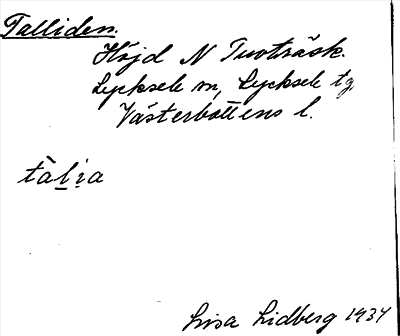 Talliden.
Höjd N Tuvträsk.
Lycksele sn, Lycksele tg
Västerbottens l.
tàl̲i̲a
Lisa Lidberg 1934